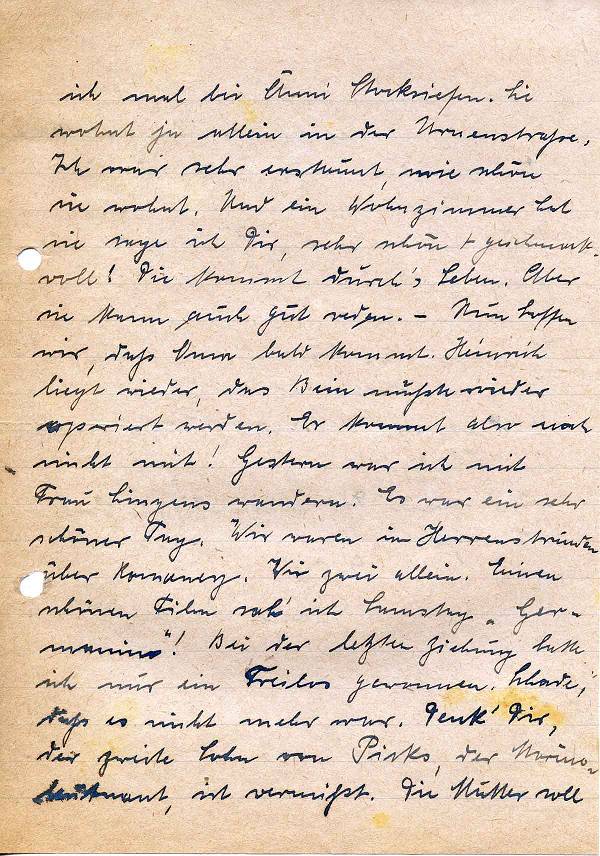 ich mal bei Änni Stocksiefen. Sie
wohnt ja allein in der Urnenstraße.
Ich war sehr erstaunt, wie schön
sie wohnt. Und ein Wohnzimmer hat
sie sage ich Dir, sehr schön + geschmack-
voll! Die kommt durch's Leben. Aber
sie kann auch gut reden. – Nun hoffen
wir, daß Oma bald kommt. Heinrich
liegt wieder, das Bein mußte wieder
operiert werden. Er kommt also noch
nicht mit! Gestern war ich mit
Frau Lingens wandern. Es war ein sehr
schöner Tag. Wir waren in Herrenstrunden
über Romaney. Wir zwei allein. Einen
schönen Film sah' ich Samstag „Ger-
manin"! Bei der letzten Ziehung hatte
ich nur ein Freilos gewonnen. Schade,
daß es nicht mehr war. Denk' Dir,
der zweite Sohn von Picks, der Marine-
leutnant, ist vermißt. Die Mutter soll